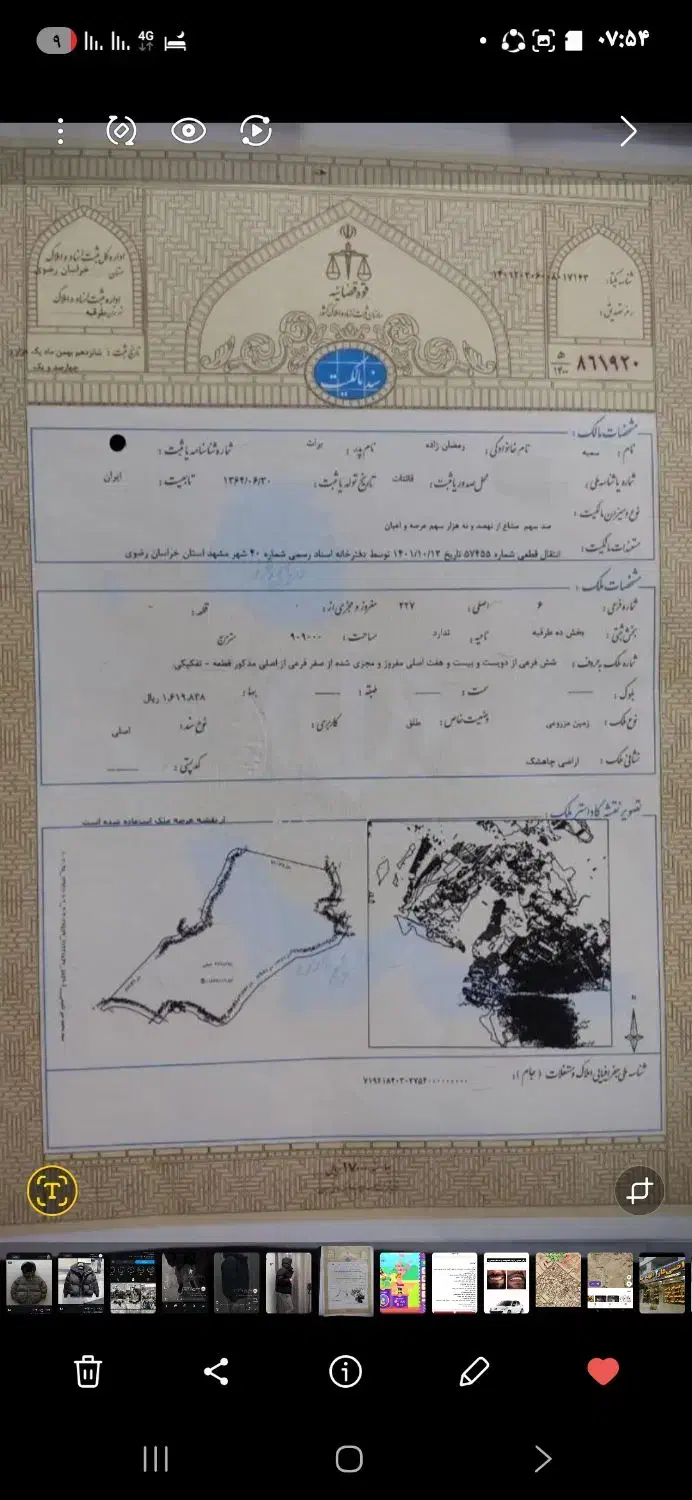 ۹
4G
۰۷:۵۴
اداره کل ثبت اسناد و املاک
استان خراسان رضوی
اداره ثبت اسناد و املاک
طرقبه
قوه قضائیه
سازمان ثبت اسناد و املاک کشور
شناسه یکتا:
رمز تصدیق:
۸۶۱۹۲۰
۵
۱۴۰۰
تاریخ ثبت : شانزدهم بهمن ماه یک هزار و
چهارصد و یک
سند مالکیت
مشخصات مالک :
نام : سمیه نام خانوادگی : رمضان زاده نام پدر : برات شماره شناسنامه یا ثبت :
شماره یا شناسه ملی : محل صدور یا ثبت : قائنات تاریخ تولد یا ثبت : ۱۳۶۲/۰۶/۳۰ تابعیت : ایران
نوع و میزان مالکیت :
صد سهم مشاع از نهصد و نه هزار سهم عرصه و اعیان
مستندات مالکیت : انتقال قطعی شماره ۵۷۴۵۵ تاریخ ۱۴۰۱/۱۰/۱۳ توسط دفترخانه اسناد رسمی شماره ۴۰ شهر مشهد استان خراسان رضوی
مشخصات ملک :
شماره فرعی : ۶ اصلی : ۲۲۷ مفروز و مجزی از : ۰ قطعه : -
بخش ثبتی : بخش ده طرقبه ناحیه : ندارد مساحت : ۹۰۹۰۰۰ مترمربع
شماره ملک به حروف : شش فرعی از دویست و بیست و هفت اصلی مفروز و مجزی شده از صفر فرعی از اصلی مذکور قطعه - تفکیکی
بلوک : سمت : طبقه : بها : ۱,۶۱۹,۸۳۸ ریال
نوع ملک : زمین مزروعی وضعیت خاص : طلق کاربری : نوع سند : اصلی
نشانی ملک : اراضی چاهشک کدپستی :
تصویر نقشه کاداستر ملک :
از نقشه عرصه ملک استفاده شده است
N
شناسه ملی جغرافیایی املاک و مستغلات ( جام ) :
T